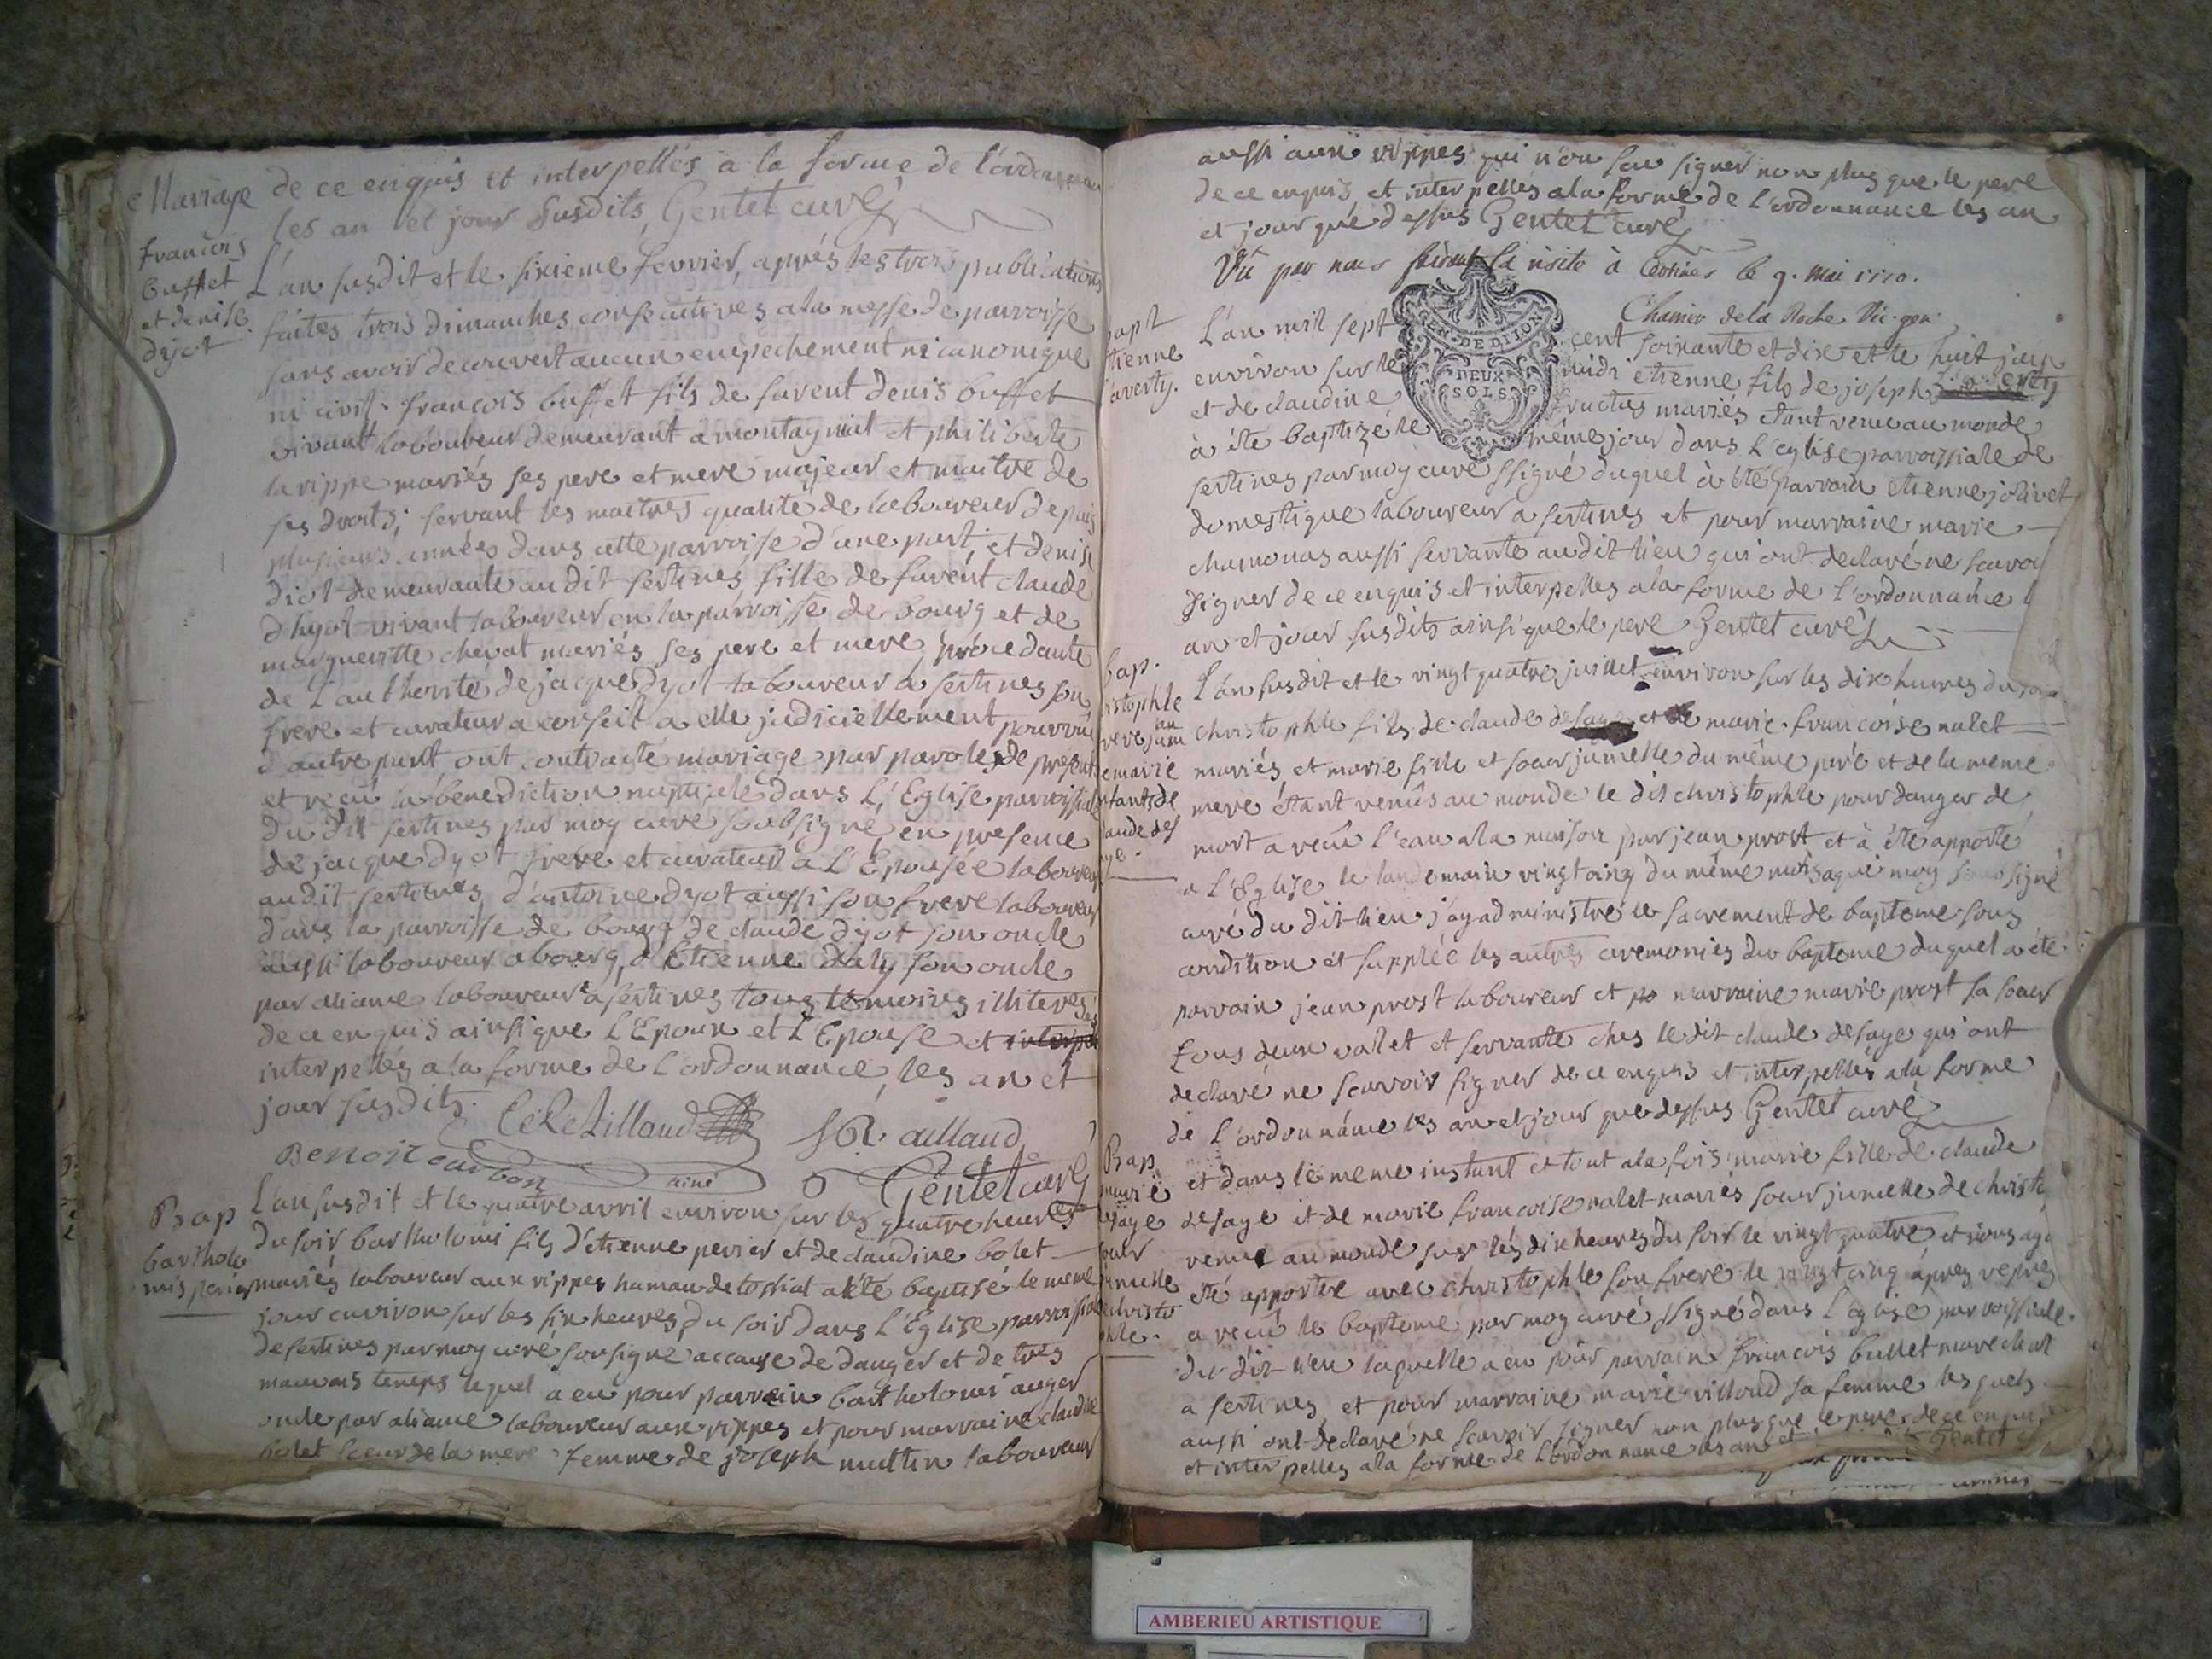 Mariage
françois
buffet
et denise
dyot
de ce enquis et interpellés a la forme de l'ordonnance
les an et jour susdits, Gentet curé
L'an susdit et le sixieme fevrier, apprés les trois publications
faites trois dimanches consecutives a la messe de parroisse
sans avoir decouvert aucun empechement ni canonique
ni civil. françois buffet fils de favent denis buffet
vivant laboureur demeurant a montagniat et philiberte
larippe mariés ses pere et mere majeur et maitre de
ses droits; servant les maitres qualité de laboureur depuis
plusieurs années dans cette parroisse d'une part, et denise
diot demeurante au dit sertines fille de favent claude
dhyot vivant laboureur en la parroisse de bourg et de
margueritte chevat mariés ses pere et mere, procedante
de l'authorité de jacque dyot laboureur a sertines son
frere et curateur a conseil a elle judiciellement pourvu
d'autre part ont contracté mariage par paroles de present
et recu la benediction nuptiale dans L'Eglise parroissiale
du dit sertines par moy curé soubsigné en presence
de jacque dyot frere et curateur a L'Epousée laboureur
au dit sertines, d'antoine dyot aussi son frere laboureur
dans la parroisse de bourg de claude dyot son oncle
aussi laboureur a bourg, d'Etienne daly son oncle
par aliance laboureur a sertines tous temoins illiteres
de ce enquis ainsi que L'Epoux et L'Epouse et
interpellés a la forme de L'ordonnance, les an et
jour susdits.
Benoit carbon ainé Gentet curé
Bap
bartholo
mis perier
L'an susdit et le quatre avril environ sur les quatre heures
du soir bartholomi fils d'etienne perier et de claudine bolet
mariés laboureur aux rippes hamau de tossiat a été baptisé le meme
jour environ sur les six heures du soir dans L'Eglise parroissiale
de sertines par moy curé sousigné accause de danger et de tres
mauvais temps lequel a eu pour parrain bartholomi auger
oncle par aliance laboureur aux rippes et pour marraine claudine
bolet soeur de la mere femme de joseph multin laboureur
aussi aux rippes qui n'on seu signer non plus que le pere
de ce enquis et interpellés a la forme de L'ordonnance les an
et jour que dessus Gentet curé
Vû par nous faisant la visite à Certines le 9. mai 1770.
Chamio de la Roche Vic. gen.
GEN. DE DIJON
DEUX
SOLS
bapt
etienne
javerty.
L'an mil sept cent soixante et dix et le huit juin
environ sur le midi etienne fils de joseph
et de claudine fructus mariés etant venu au monde
à été baptizé le même jour dans L'eglise parroissiale de
sertines par moy curé ssigné duquel à été parrain etienne jolivet
domestique laboureur a sertines et pour marraine marie
chamonas aussi servante au dit lieu qui ont declaré ne scavoir
signer de ce enquis et interpelles a la forme de L'ordonnance
an et jour susdits ainsi que le pere Gentet curé
bap.
L'an susdit et le vingt quatre juillet environ sur les dix heures du soir
christophle fils de claude desaye et de marie francoise nalet
mariés et marie fille et soeur jumelle du même pere et de la meme
mere étant venûs au monde le dit christophle pour danger de
mort a recû l'eau a la maison par jean prost et à été apporté
a L'Eglise le landemain vingt cinq du même mois a qui moy sousigné
curé du dit lieu j'ay administré le sacrement de bapteme sous
condition et supplée les autres ceremonies du bapteme duquel a été
parrain jean prost laboureur et marraine marie prost sa soeur
tous deux vallet et servante ches le dit claude desaye qui ont
declaré ne scavoir signer de ce enquis et interpellés a la forme
de L'ordonnance les an et jour que dessus Gentet curé
Bap
marie
desaye
soeur
jumelle
christo
phle.
et dans le meme instant et tout a la fois marie fille de claude
desaye et de marie francoise nalet mariés soeur jumelle de christo
venue au monde sur les dix heures du soir le vingt quatre et
été apportée avec christophle son frere le vingt cinq apres vepres
a recû le bapteme par moy curé ssigné dans L'eglise parroissiale
du dit lieu laquelle a eu pour parrain françois bullet marechal
a sertines, et pour marraine marie villoud sa femme lesquels
aussi ont declaré ne scavoir signer non plus que le pere de ce enquis
et interpelles a la forme de L'ordonnance les an et Gentet
AMBERIEU ARTISTIQUE